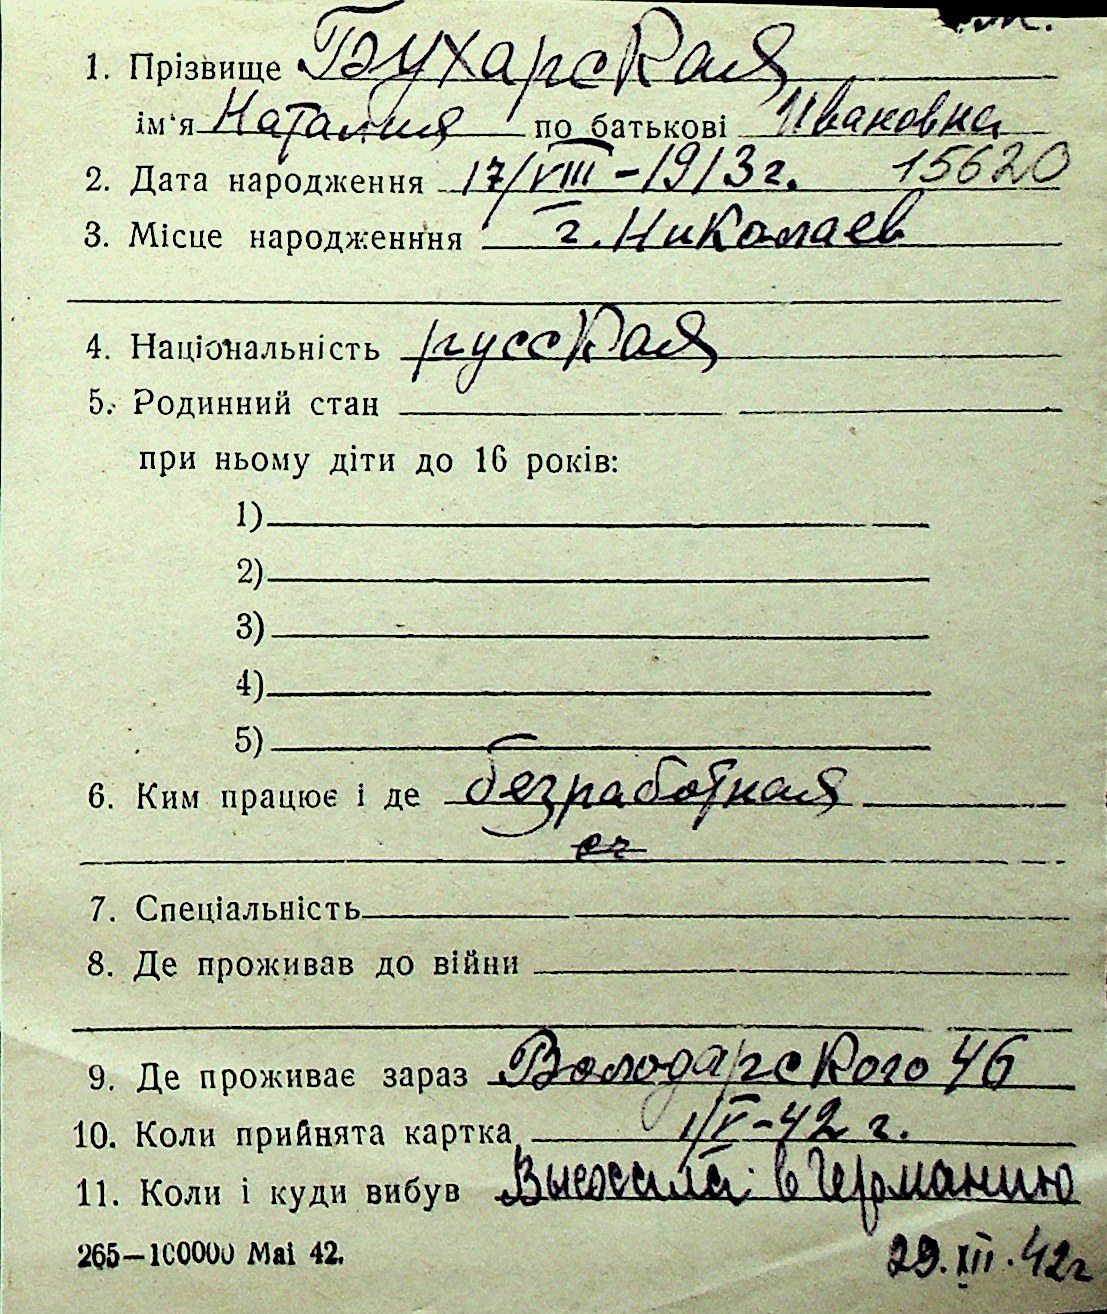 1. Прізвище Бухарская
ім'я Наталия по батькові Ивановна
2. Дата народження 17/VIII-1913г. 15620
3. Місце народженння г. Николаев
4. Національність русская
5. Родинний стан
при ньому діти до 16 років:
1)
2)
3)
4)
5)
6. Ким працює і де безработная
7. Спеціальність
8. Де проживав до війни
9. Де проживає зараз Володарского 46
10. Коли прийнята картка 1/V-42 г.
11. Коли і куди вибув в Германию
265—100000 Mai 42. 29.XII.42г